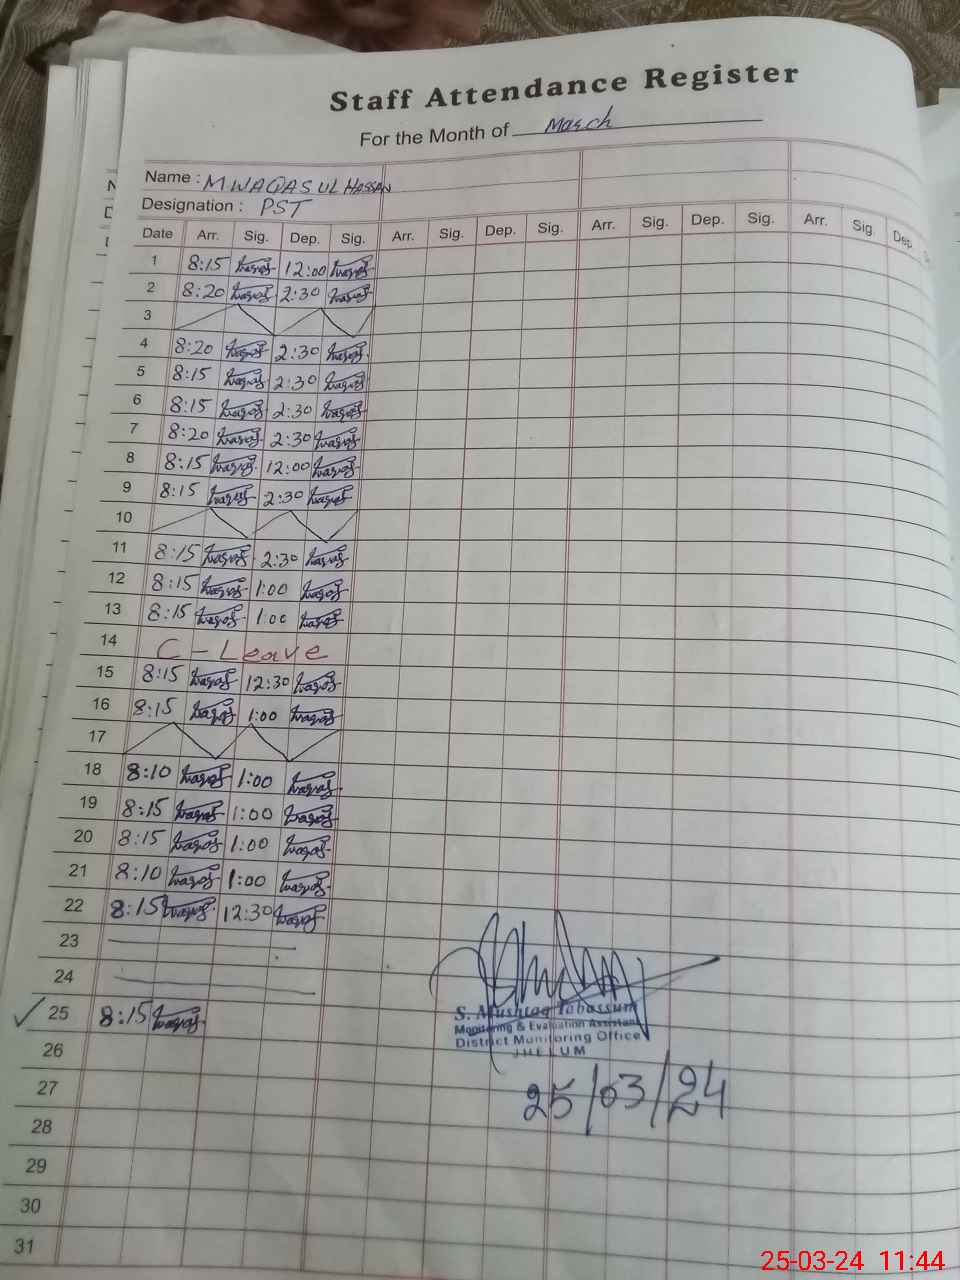 Staff Attendance Register
For the Month of March
Name : M WAQAS UL HASSAN
Designation : PST
Date Arr. Sig. Dep. Sig. Arr. Sig. Dep. Sig. Arr. Sig. Dep. Sig. Arr. Sig. Dep.
1 8:15 Waqas 12:00 Waqas
2 8:20 Waqas 2:30 Waqas
3
4 8:20 Waqas 2:30 Waqas
5 8:15 Waqas 2:30 Waqas
6 8:15 Waqas 2:30 Waqas
7 8:20 Waqas 2:30 Waqas
8 8:15 Waqas 12:00 Waqas
9 8:15 Waqas 2:30 Waqas
10
11 8:15 Waqas 2:30 Waqas
12 8:15 Waqas 1:00 Waqas
13 8:15 Waqas 1:00 Waqas
14 C - Leave
15 8:15 Waqas 12:30 Waqas
16 8:15 Waqas 1:00 Waqas
17
18 8:10 Waqas 1:00 Waqas
19 8:15 Waqas 1:00 Waqas
20 8:15 Waqas 1:00 Waqas
21 8:10 Waqas 1:00 Waqas
22 8:15 Waqas 12:30 Waqas
23
24
25 8:15 Waqas
S. Mushtaq Tabassum
Monitoring & Evaluation Assistant
District Monitoring Office
JHELUM
26
27
25/03/24
28
29
30
31
25-03-24 11:44